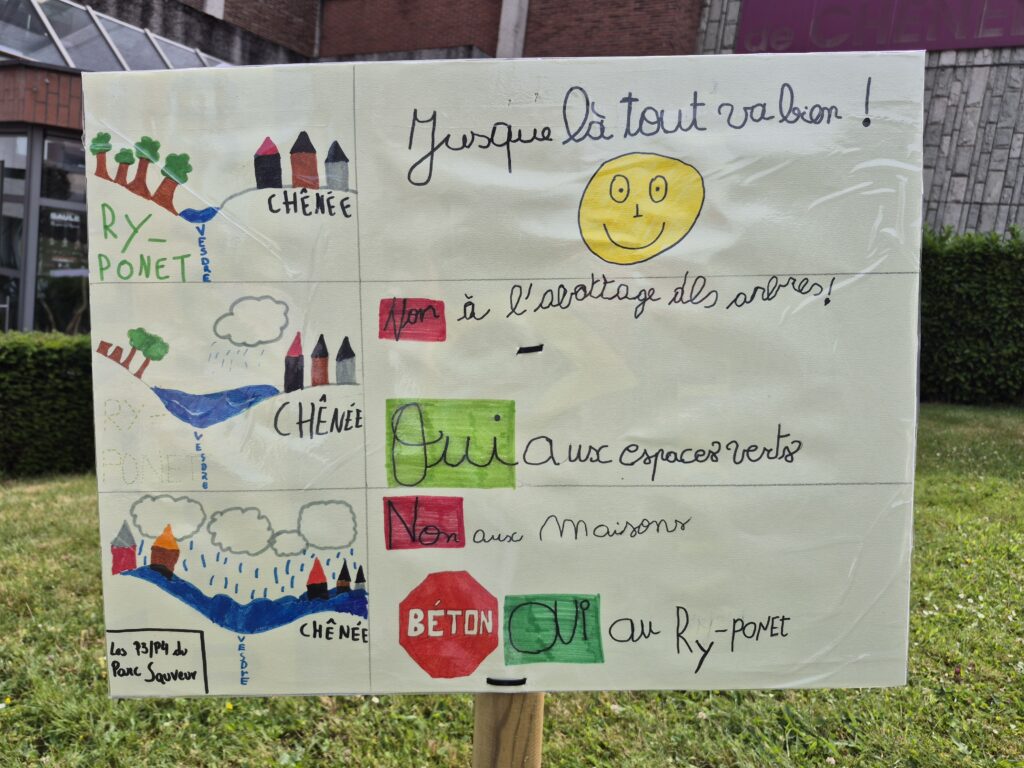 de CHÊNÉE
Jusque là tout va bien !
CHÊNÉE
RY-
PONET
VESDRE
Non à l'abattage des arbres!
CHÊNÉE
RY-
PONET
VESDRE
Oui aux espaces verts
Non aux maisons
CHÊNÉE
VESDRE
BÉTON OUI au RY-PONET
Les P3/P4 du
Parc Sauveur